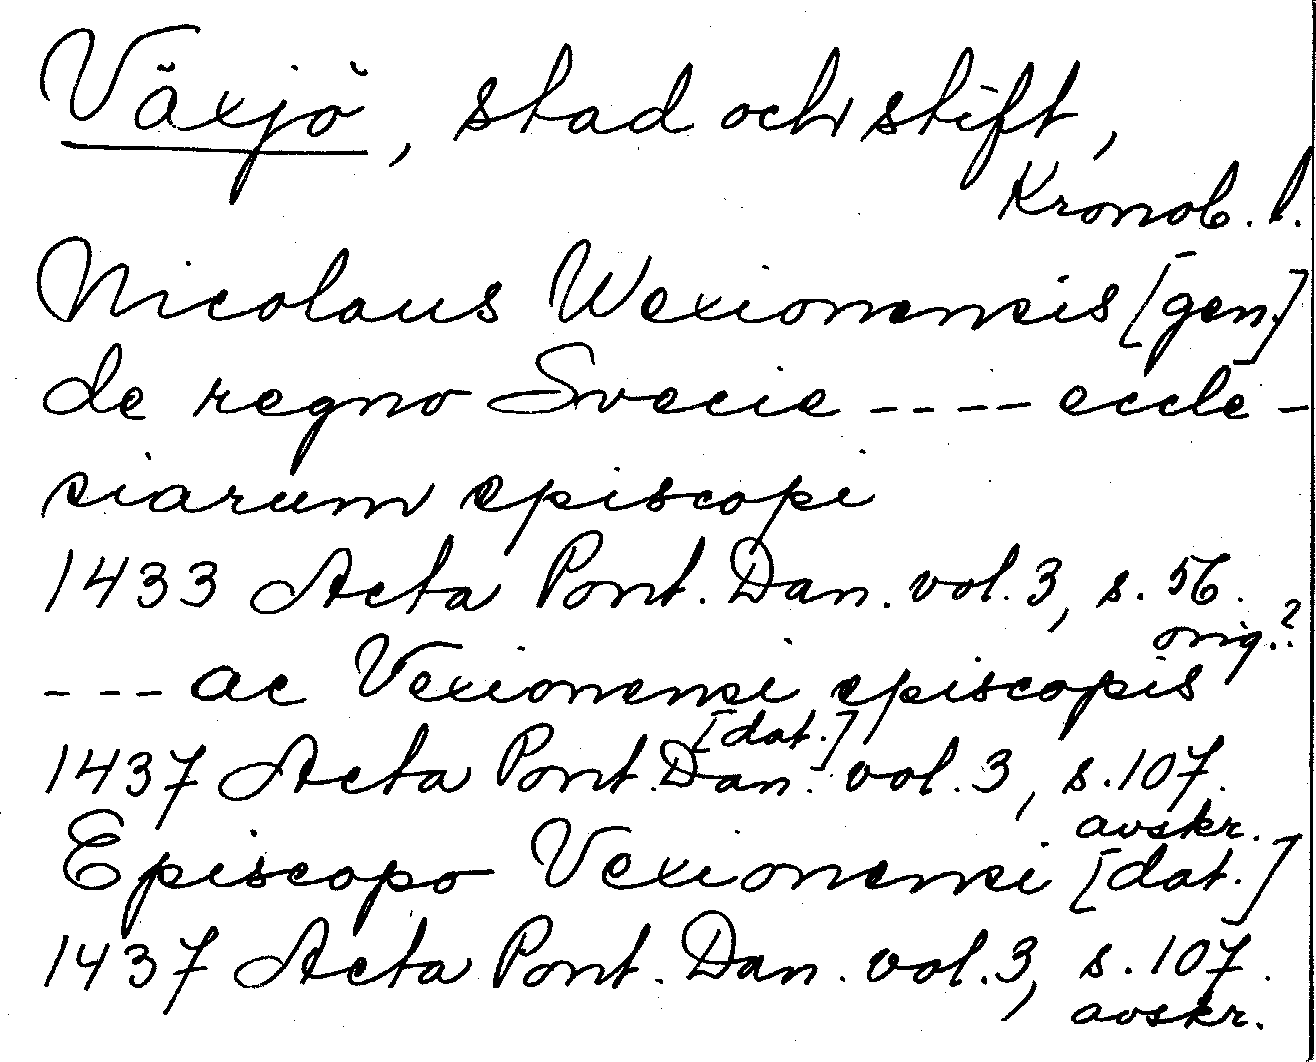 Växjö, stad och stift,
Kronob. l.
Nicolaus Wexionensis [gen.]
de regno Svecie ---- eccle-
siarum episcopi
1433 Acta Pont. Dan. vol. 3, s. 56.
orig.?
--- ac Vexionensi episcopis
[dat.]
1437 Acta Pont. Dan. vol. 3, s. 107.
avskr.
Episcopo Vexionensi [dat.]
1437 Acta Pont. Dan. vol. 3, s. 107.
avskr.